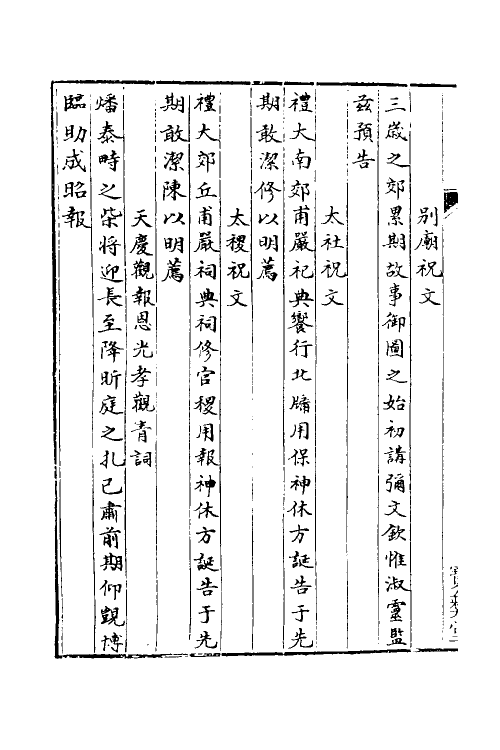 別廟祝文
三歲之郊累期故事御圖之始初講彌文欽惟淑靈監
兹預告
太社祝文
禮大南郊甫嚴祀典饗行北牖用保神休方誕告于先
期敢潔修以明薦
太稷祝文
禮大郊丘甫嚴祠典祠修官稷用報神休方誕告于先
期敢潔陳以明薦
天慶觀報恩光孝觀青詞
燔泰畤之柴將迎長至降昕庭之札已肅前期仰覬博
臨助成昭報